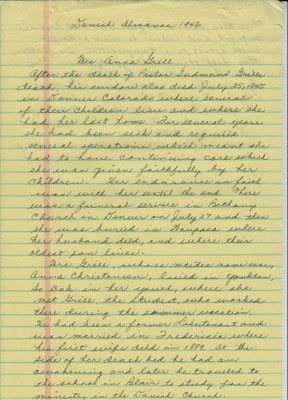 Danish Almanac 1946
Mrs Anna Grill
After the death of Pastor Gudmund Grill
death, his widow also died July 25, 1945
in Denver Colorado where several
of their children lives and where she
had her last home. For several years
she had been sick and required
several operations which meant she
had to have continuing care which
she was given faithfully by her
children. Her endurance in faith
was with her until the end. There
was a funeral service in Bethany
Church in Denver on July 27 and then
she was buried in Waupaca where
her husband died, and where their
oldest son lives.
Mrs Grill, whose maiden name was,
Anna Christensen, lived in Yankton,
So Dak in her youth, where she
met Grill, the Student, who worked
there during the summer vacation.
He had been a former Lieutenant and
was married in Fredericia where
his first wife died in 1889. At the
side of her death bed he had an
awakening and later he traveled to
the school in Blair to study for the
ministry in the Danish Church.